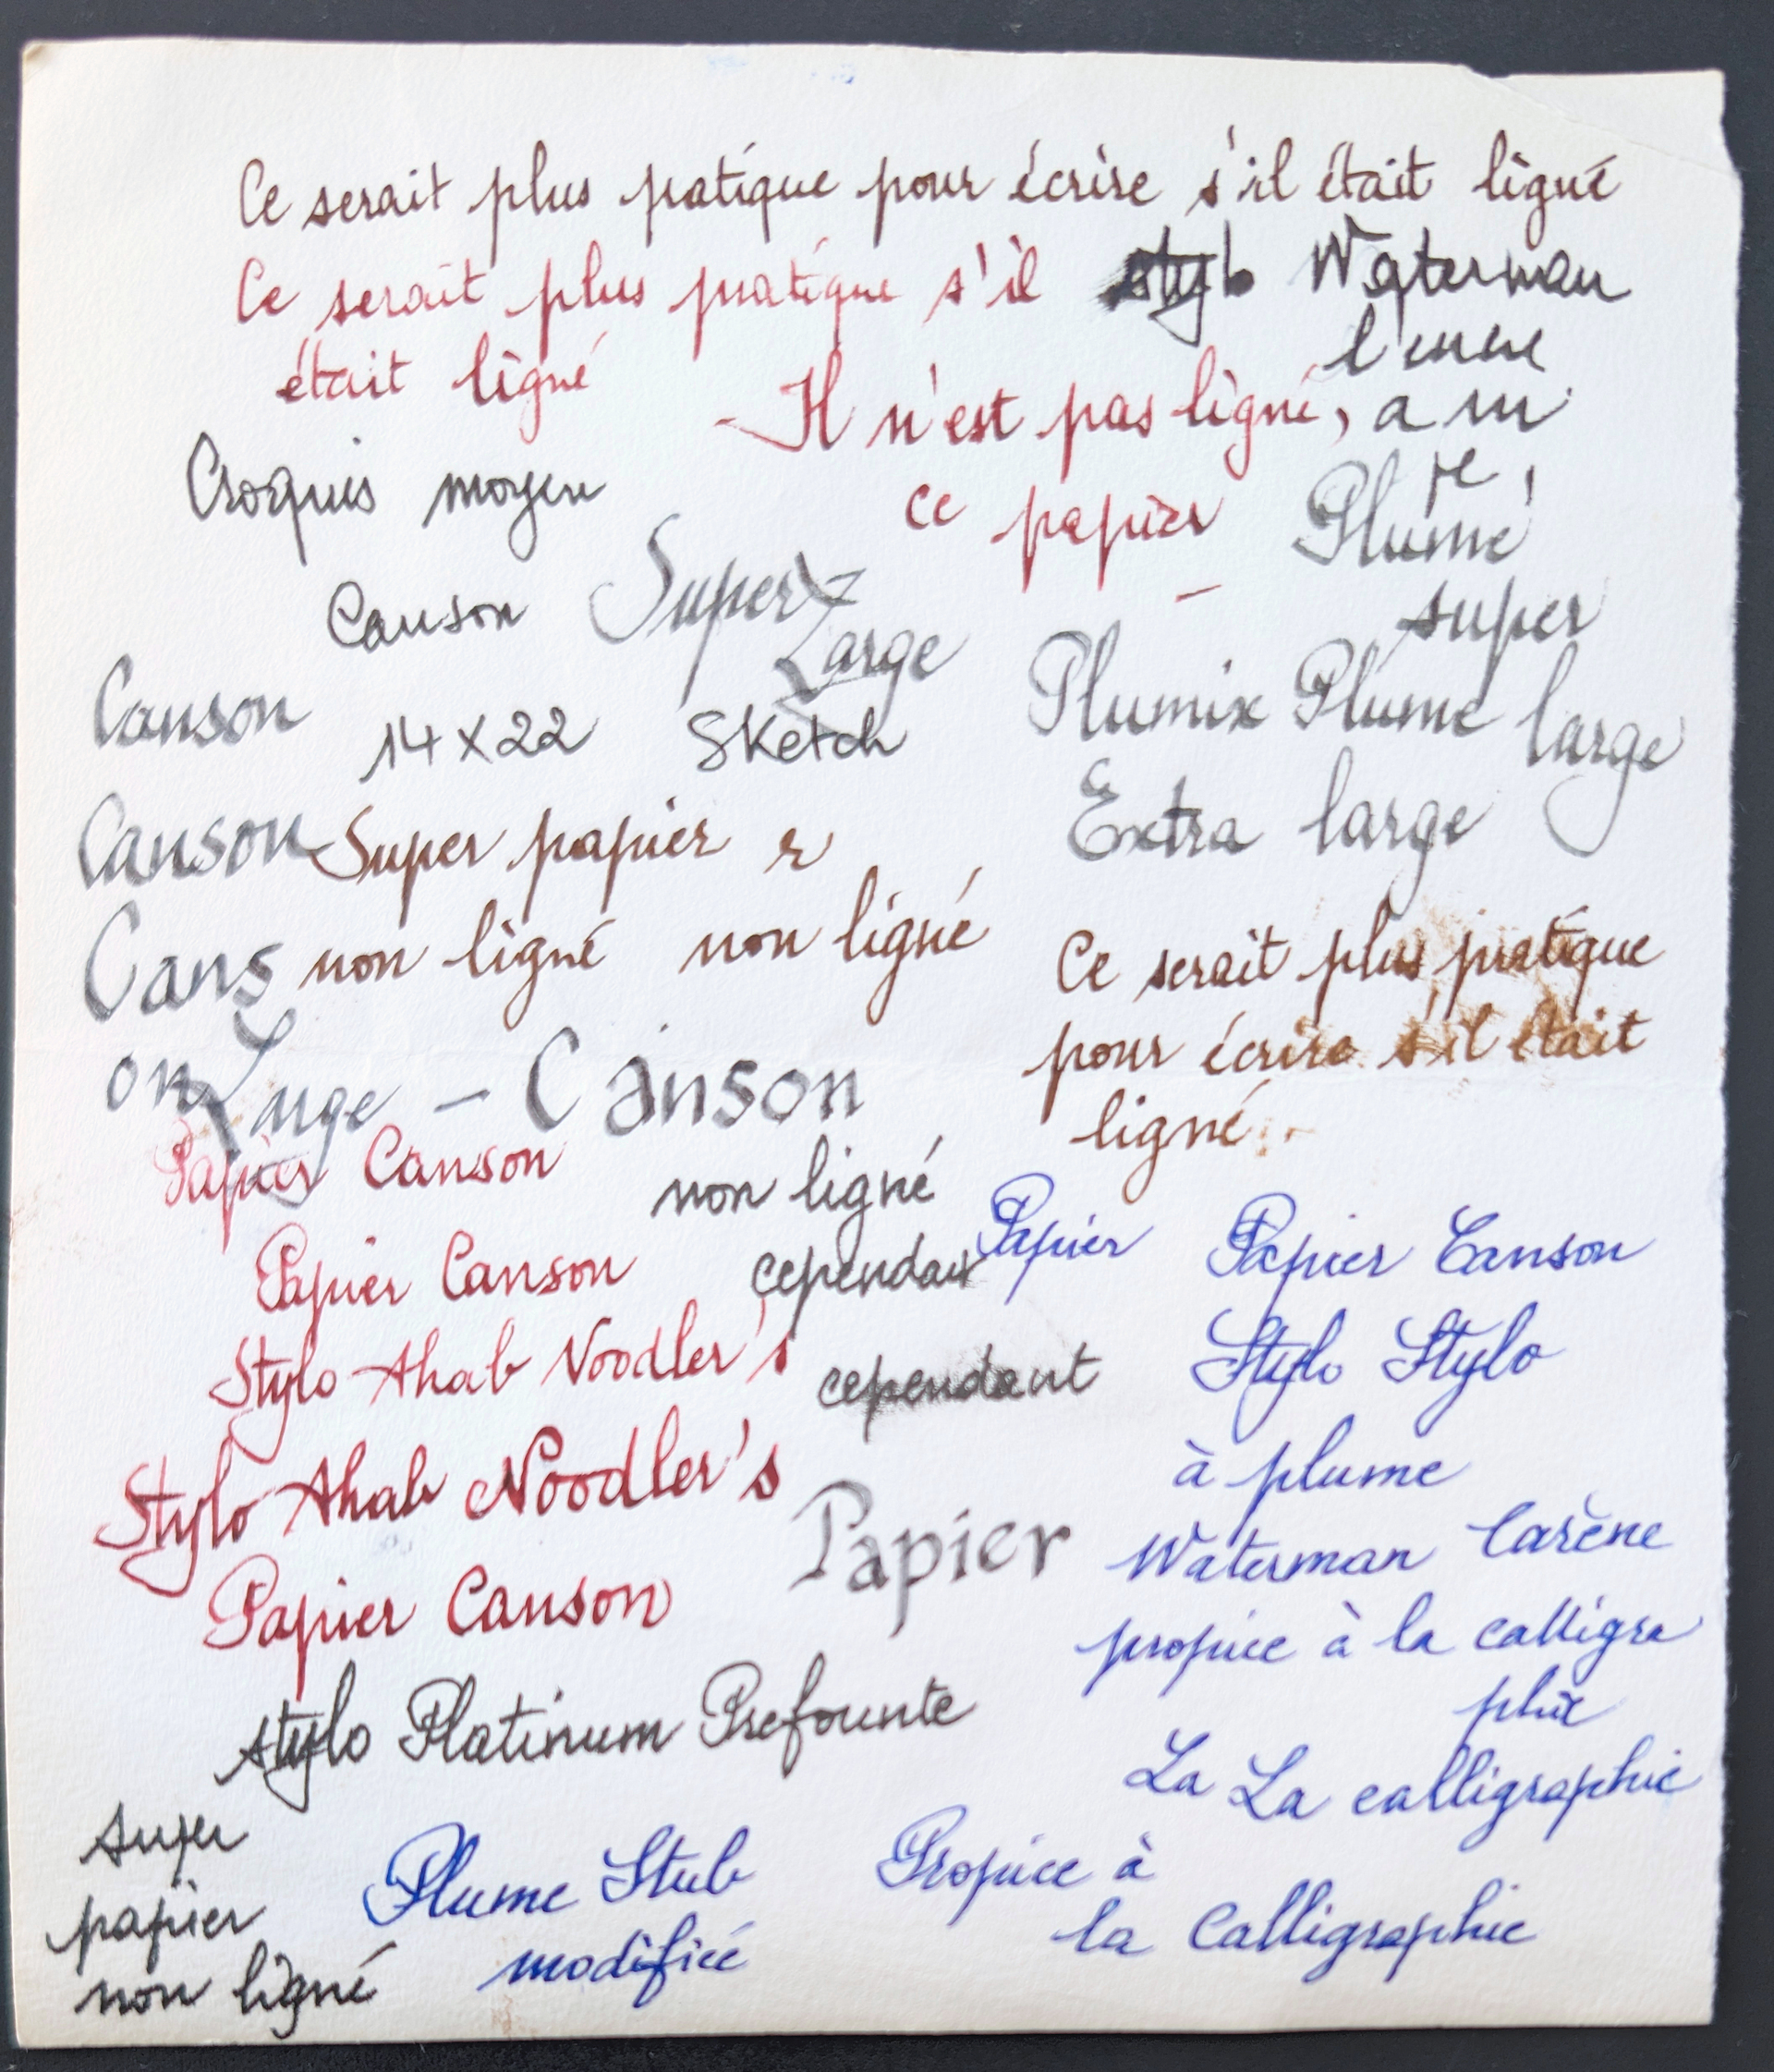 Ce serait plus pratique pour écrire s'il était ligné
Ce serait plus pratique s'il
était ligné
stylo Waterman
- Il n'est pas ligné,
ce papier
-
Croquis moyen
Canson
Super
Large
Plume
super
large
Plumix Plume
Extra large
Canson
14x22 Sketch
Canson
Super papier r
Cans
on
non ligné non ligné
Large - Canson
Ce serait plus pratique
pour écrire s'il était
ligné.
Papier Canson
non ligné
Papier Canson
cependant
Papier
Papier Canson
Stylo Ahab Noodler's
cependant
Stylo Stylo
à plume
Stylo Ahab Noodler's
Papier
Waterman Carène
Papier Canson
propice à la calligra
phie
stylo Platinum Prefounte
La La calligraphie
super
papier
non ligné
Plume Stub
modifiée
Propice à
la Calligraphie